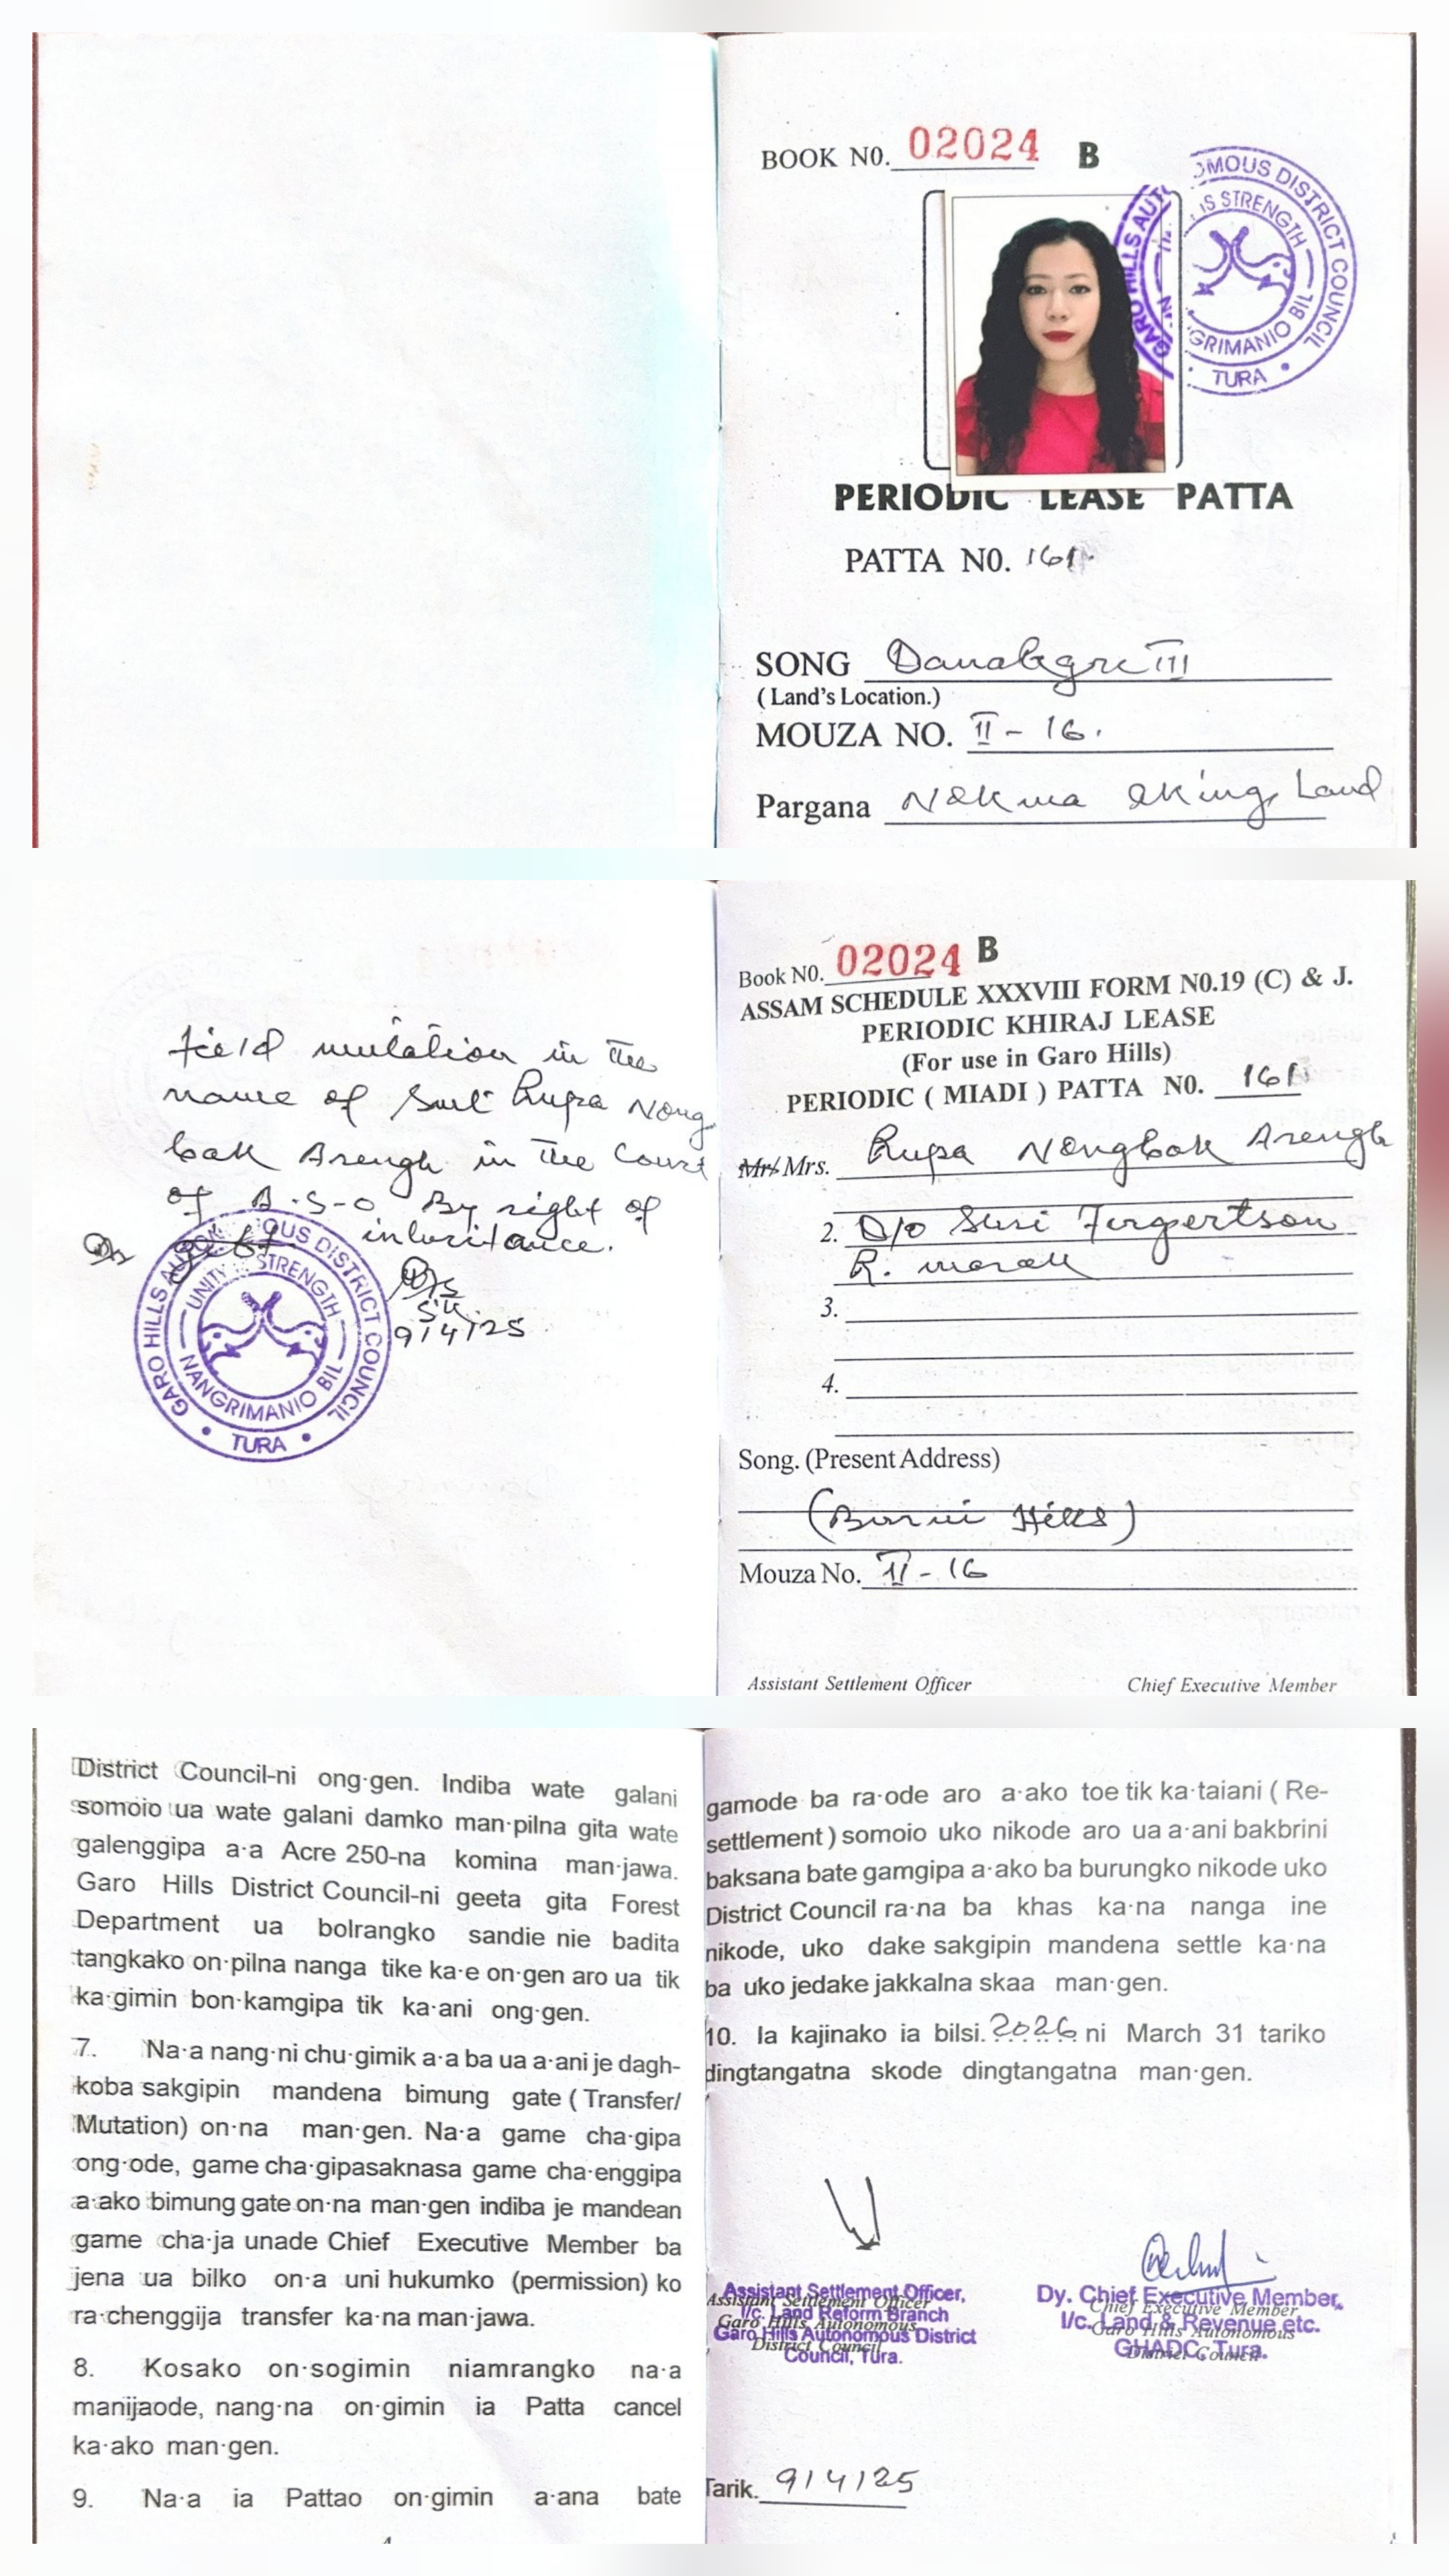 BOOK N0. 02024 B
GARO HILLS AUTONOMOUS DISTRICT COUNCIL
IS STRENGTH
GRIMANIO BIL
• TURA •
PERIODIC LEASE PATTA
PATTA N0. 161
SONG Danakgre III
( Land's Location.)
MOUZA NO. II - 16.
Pargana Nokma aking Land
Field mutation in the
name of Smt Rupa Nong
bak Arengh in the Court
of A.S-O By right of
inheritance.
9/4/25
GARO HILLS AUTONOMOUS DISTRICT COUNCIL
UNITY IS STRENGTH
NANGRIMANIO BIL
• TURA •
Book N0. 02024 B
ASSAM SCHEDULE XXXVIII FORM N0.19 (C) & J.
PERIODIC KHIRAJ LEASE
(For use in Garo Hills)
PERIODIC ( MIADI ) PATTA N0. 161
Mr/ Mrs. Rupa Nongbak Arengh
2. D/o Suri Fergertson
R. marak
3.
4.
Song. (Present Address)
(Burni Hills)
Mouza No. II - 16
Assistant Settlement Officer Chief Executive Member
District Council-ni ong·gen. Indiba wate galani
somoio ua wate galani damko man·pilna gita wate
galenggipa a·a Acre 250-na komina man·jawa.
Garo Hills District Council-ni geeta gita Forest
Department ua bolrangko sandie nie badita
tangkako on·pilna nanga tike ka·e on·gen aro ua tik
ka·gimin bon·kamgipa tik ka·ani ong·gen.
7. Na·a nang·ni chu·gimik a·a ba ua a·ani je dagh-
koba sakgipin mandena bimung gate ( Transfer/
Mutation) on·na man·gen. Na·a game cha·gipa
ong·ode, game cha·gipasaknasa game cha·enggipa
a·ako bimung gate on·na man·gen indiba je mandean
game cha·ja unade Chief Executive Member ba
jena ua bilko on·a uni hukumko (permission) ko
ra·chenggija transfer ka·na man·jawa.
8. Kosako on·sogimin niamrangko na·a
manijaode, nang·na on·gimin ia Patta cancel
ka·ako man·gen.
9. Na·a ia Pattao on·gimin a·ana bate
gamode ba ra·ode aro a·ako toe tik ka·taiani ( Re-
settlement ) somoio uko nikode aro ua a·ani bakbrini
baksana bate gamgipa a·ako ba burungko nikode uko
District Council ra·na ba khas ka·na nanga ine
nikode, uko dake sakgipin mandena settle ka·na
ba uko jedake jakkalna skaa man·gen.
10. Ia kajinako ia bilsi. 2026 ni March 31 tariko
dingtangatna skode dingtangatna man·gen.
Assistant Settlement Officer,
I/c. Land Reform Branch
Garo Hills Autonomous District
Council, Tura.
Assistant Settlement Officer
Garo Hills Autonomous
District Council
Dy. Chief Executive Member,
I/c. Land & Revenue etc.
GHADC, Tura.
Chief Executive Member
Garo Hills Autonomous
District Council
Tarik. 9/4/25